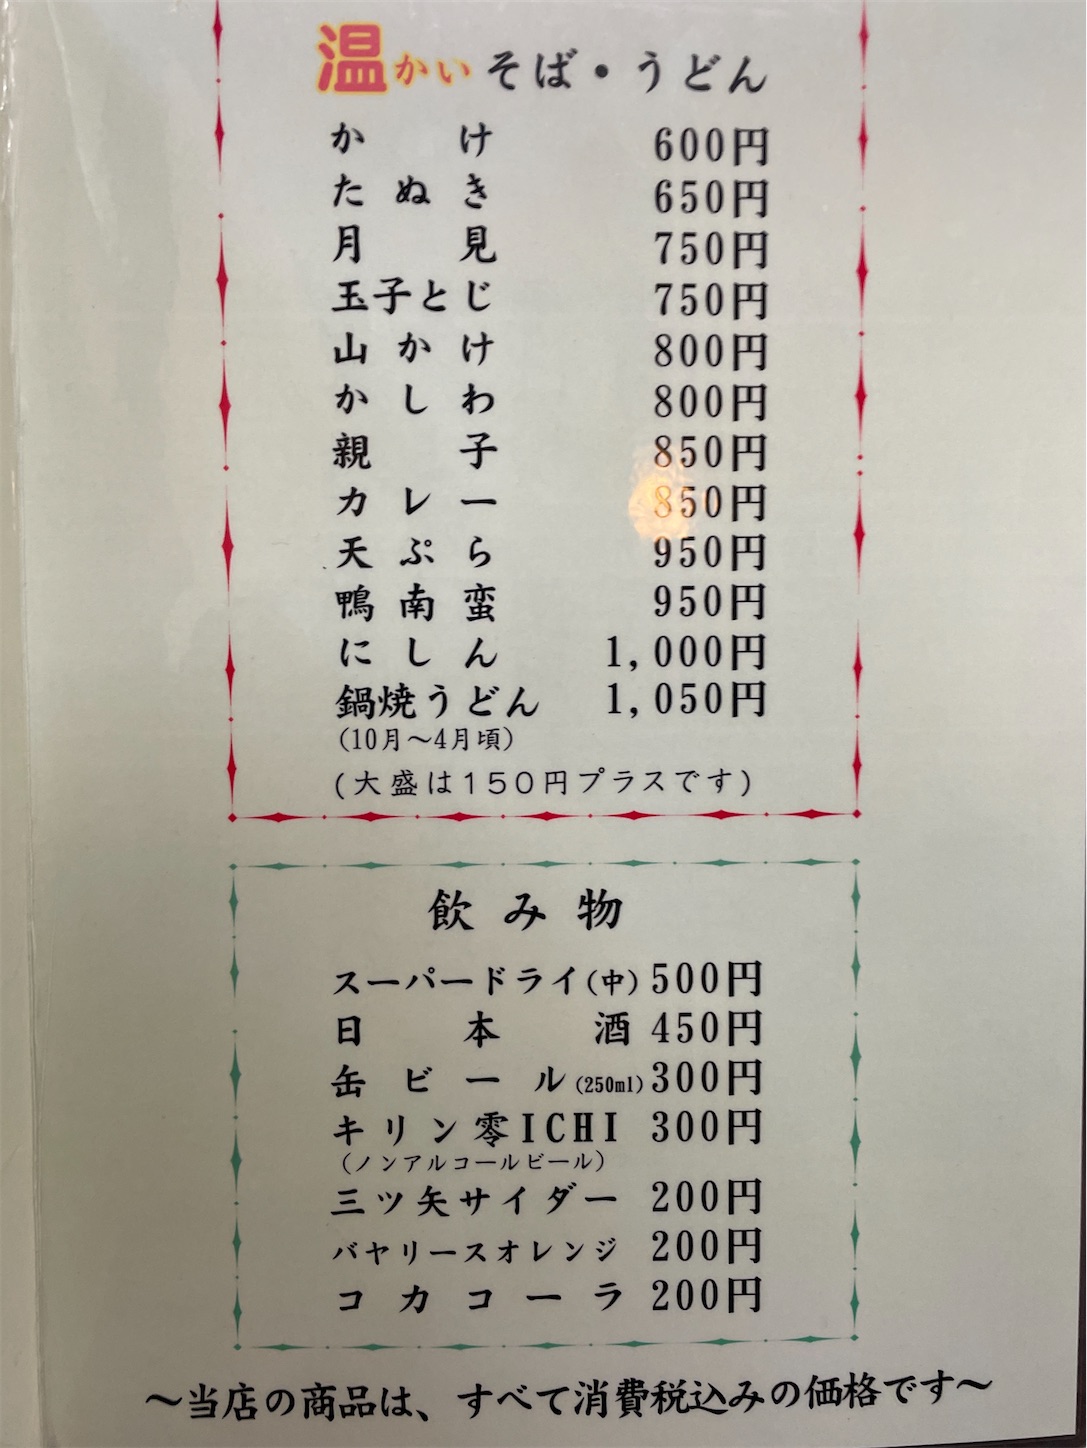 温かいそば・うどん
かけ 600円
たぬき 650円
月見 750円
玉子とじ 750円
山かけ 800円
かしわ 800円
親子 850円
カレー 850円
天ぷら 950円
鴨南蛮 950円
にしん 1,000円
鍋焼うどん 1,050円
(10月〜4月頃)
(大盛は150円プラスです)
飲み物
スーパードライ(中) 500円
日本酒 450円
缶ビール(250ml) 300円
キリン零ICHI 300円
(ノンアルコールビール)
三ツ矢サイダー 200円
バヤリースオレンジ 200円
コカコーラ 200円
〜当店の商品は、すべて消費税込みの価格です〜